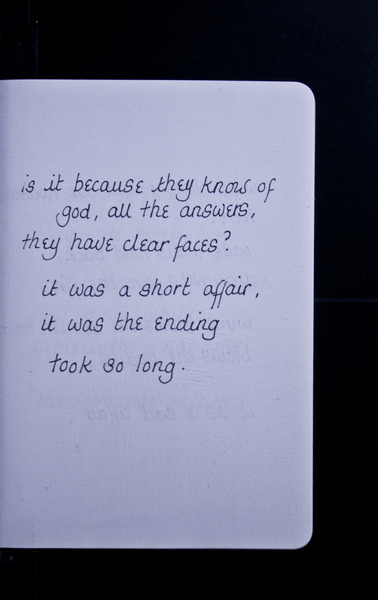 is it because they know of
god, all the answers,
they have clear faces?
it was a short affair,
it was the ending
took so long.